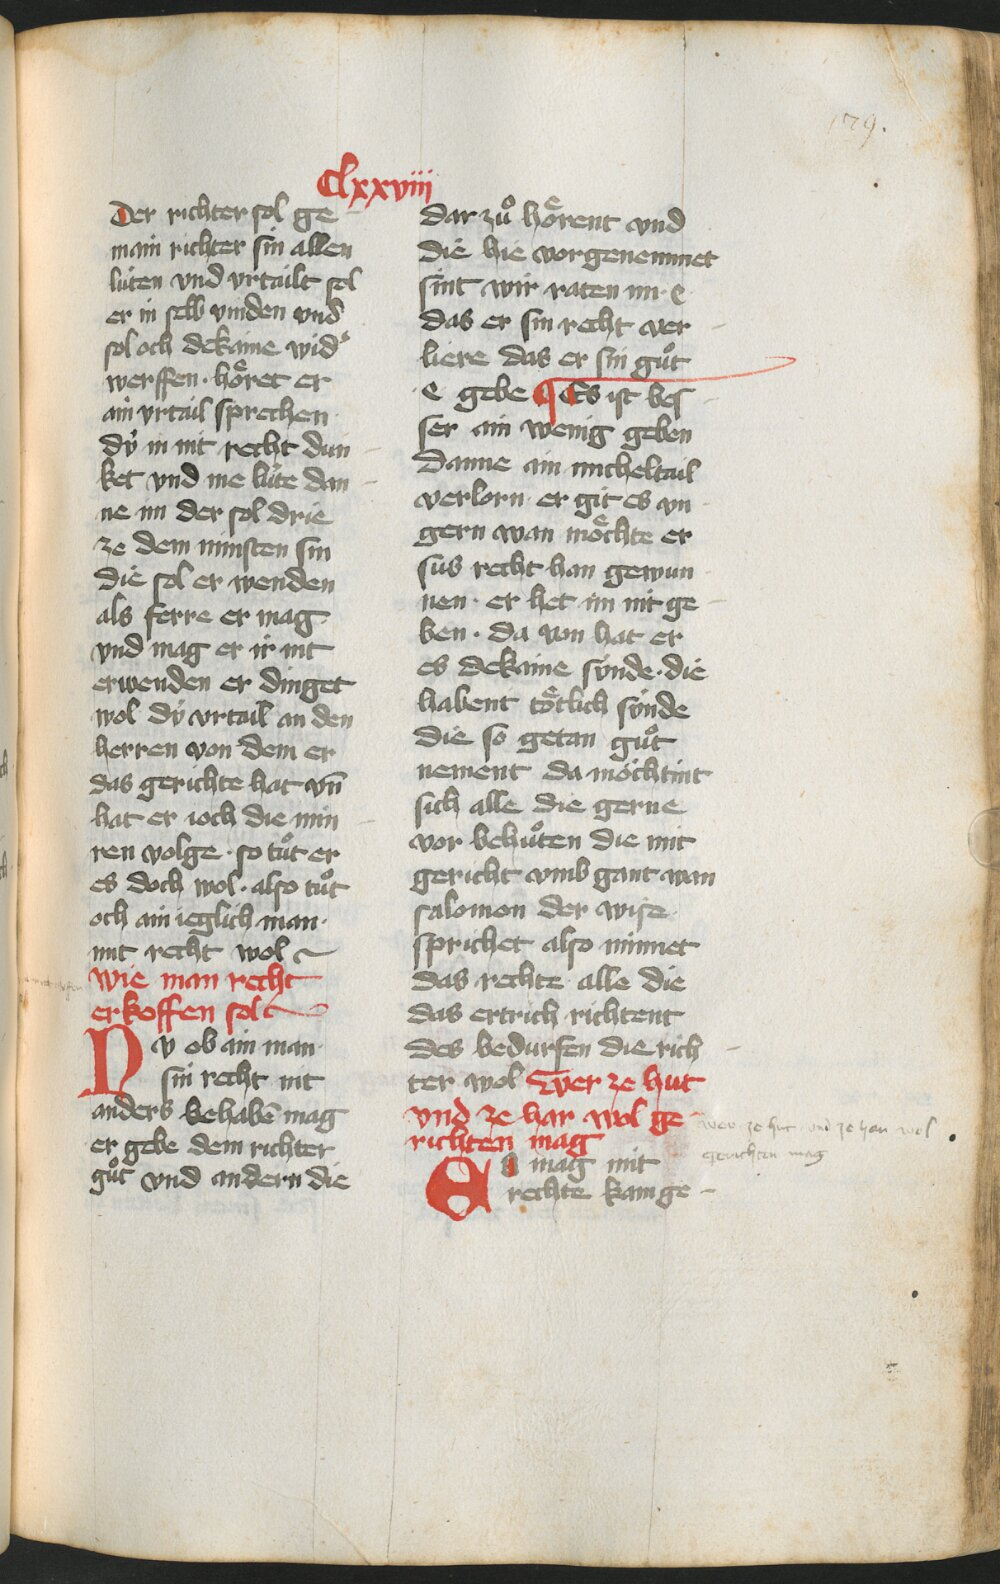 179.
Clxxviii
Der richter sol ge
main richter sin allen
lüten vnd vrtailt sol
er in selb vinden vnd
sol och dekaine wid͛
werffen · hoͤret er
ain vrtail sprechen
dÿ in nit recht dun
ket vnd me lüte dan
ne im der sol drie
ze dem minsten sin
die sol er wenden
als ferre er mag
vnd mag er ir nit
erwenden er dinget
wol dÿ vrtail an den
herren von dem er
das gerichte hat vn̄
hat er ioch die min
ren volge · so tuͦt er
es doch wol · also tuͦt
och ain ieglich man ·
mit recht wol
wie man recht
erkoffen sol
Nv ob ain man
sin recht nit
anders behabē mag
er gebe dem richter
guͦt vnd andern die
dar zuͦ hoͤrent vnd
die hie vorgenemmet
sint wir raten im · e
das er sin recht ver
liere das er sin guͦt
· e gebe ¶ Es ist bes
ser ain wenig geben
danne ain micheltail
verlorn · er git es vn
gern wan moͤchte er
sus recht han gewun
nen · er het im nit ge
ben · da von hat er
es dekaine sÿnde · die
habent toͤtlich sÿnde
die so getan guͦt
nement da möchtint
sich alle die gerne
vor behuͦten die mit
gericht vmb gant wan
salomon der wise
sprichet also minnet
das rechte alle die
das ertrich richtent
des bedurfen die rich
ter wol Wer ze hut
vnd ze har wol ge
richten mag
Es mag mit
rechte kain ge
wer ze hut und ze har wol
gerichten mag